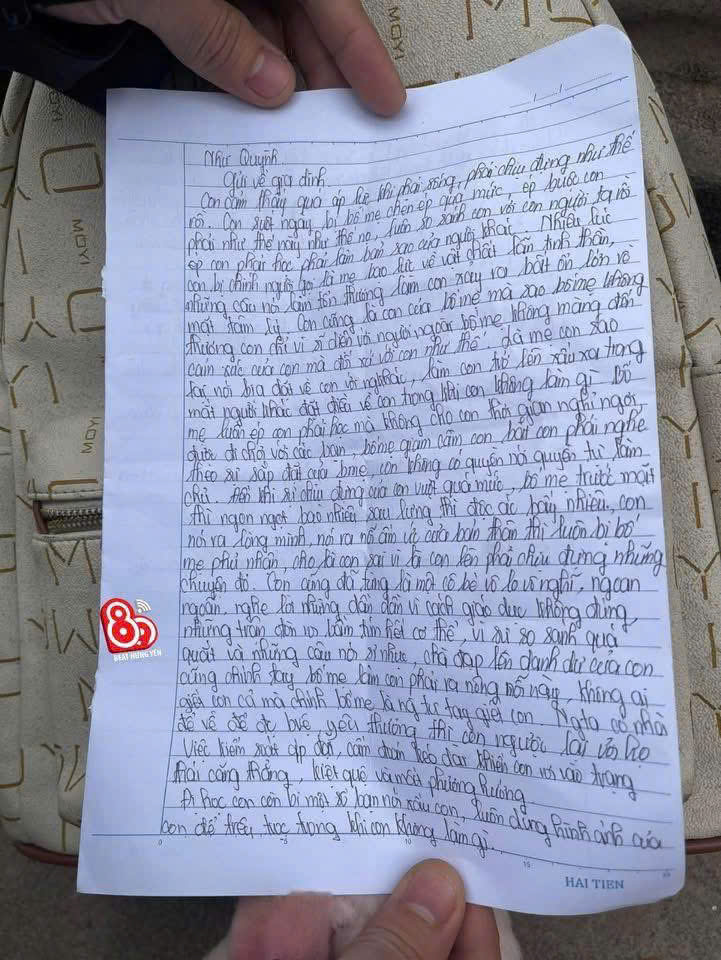 Như Quỳnh
Gửi về gia đình
Con cảm thấy quá áp lực khi phải sống, phải chịu đựng như thế
rồi. Con suốt ngày bị bố mẹ chèn ép quá mức, ép buộc con
phải như thế này như thế nọ, luôn so sánh con với con người ta rồi
ép con phải học phải làm bản sao của người khác. Nhiều lúc
con bị chính người gọi là mẹ bạo lực về vật chất lẫn tinh thần,
những câu nói làm tổn thương làm con xảy ra bất ổn lớn về
mặt tâm lý. Con cũng là con của bố mẹ mà sao bố mẹ không
thương con chỉ vì sĩ diện với người ngoài bố mẹ không màng đến
cảm xúc của con mà đối xử với con như thế, là mẹ con sao
lại nói bịa đặt về con với ng khác, làm con trở lên xấu xa trong
mắt người khác đặt điều về con trong khi con không làm gì. Bố
mẹ luôn ép con phải học mà không cho con thời gian nghỉ ngơi
được đi chơi với các bạn, bố mẹ giam cầm con bắt con phải nghe
theo sự sắp đặt của bmẹ, con không có quyền nói quyền tự làm
chủ. Đến khi sự chịu đựng của con vượt quá mức, bố mẹ trước mặt
thì ngon ngọt bao nhiêu sau lưng thì độc ác bấy nhiêu, con
nói ra lòng mình, nói ra nỗi ấm ức của bản thân thì luôn bị bố
mẹ phủ nhận, cho là con sai vì là con lên phải chịu đựng những
chuyện đó. Con cũng đã từng là một cô bé vô lo vô nghĩ, ngoan
ngoãn, nghe lời nhưng dần dần vì cách giáo dục không đúng,
những trận đòn roi bầm tím hết cơ thể, vì sự so sánh quá
quắt và những câu nói sỉ nhục, chà đạp lên danh dự của con
cũng chính tay bố mẹ làm con phải ra nông nỗi này, không ai
giết con cả mà chính bố mẹ là ng tự tay giết con. Ngta có nhà
để về để đc bve yêu thương thì con ngược lại
Việc kiểm soát áp đặt, cấm đoán kéo dài khiến con rơi vào trạng
thái căng thẳng, kiệt quệ và mất phương hướng
Đi học con còn bị một số bạn nói xấu con, luôn dùng hình ảnh của
con để trêu, tức trong khi con không làm gì.
HAI TIEN
MOYI
BEAT HƯNG YÊN